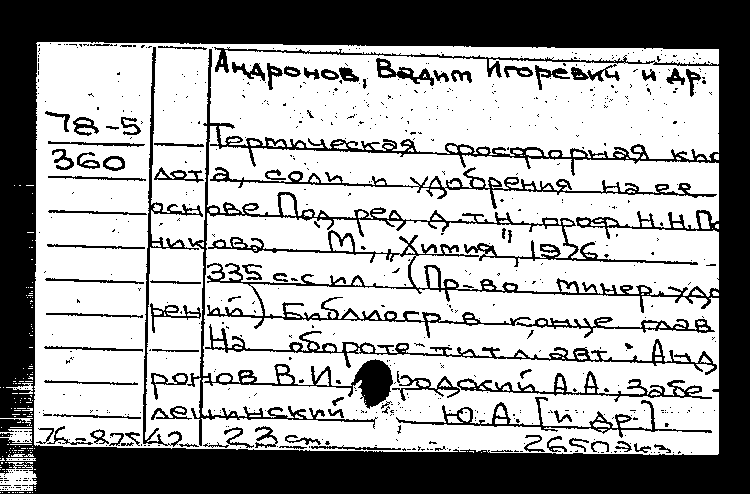 Андронов, Вадим Игоревич и др.
78-5
360
Термическая фосфорная кис
лота, соли и удобрения на ее
основе. Под ред. д.т.н., проф. Н.Н.По
никова. М., „Химия", 1976.
335 с. с ил. (Пр-во минер. удо
рений). Библиогр. в конце глав
На обороте тит. л. авт.: Анд
ронов В.И., родский А.А., Забе-
лешинский Ю.А. [и др.].
76-87542 23 см. 2650 экз.